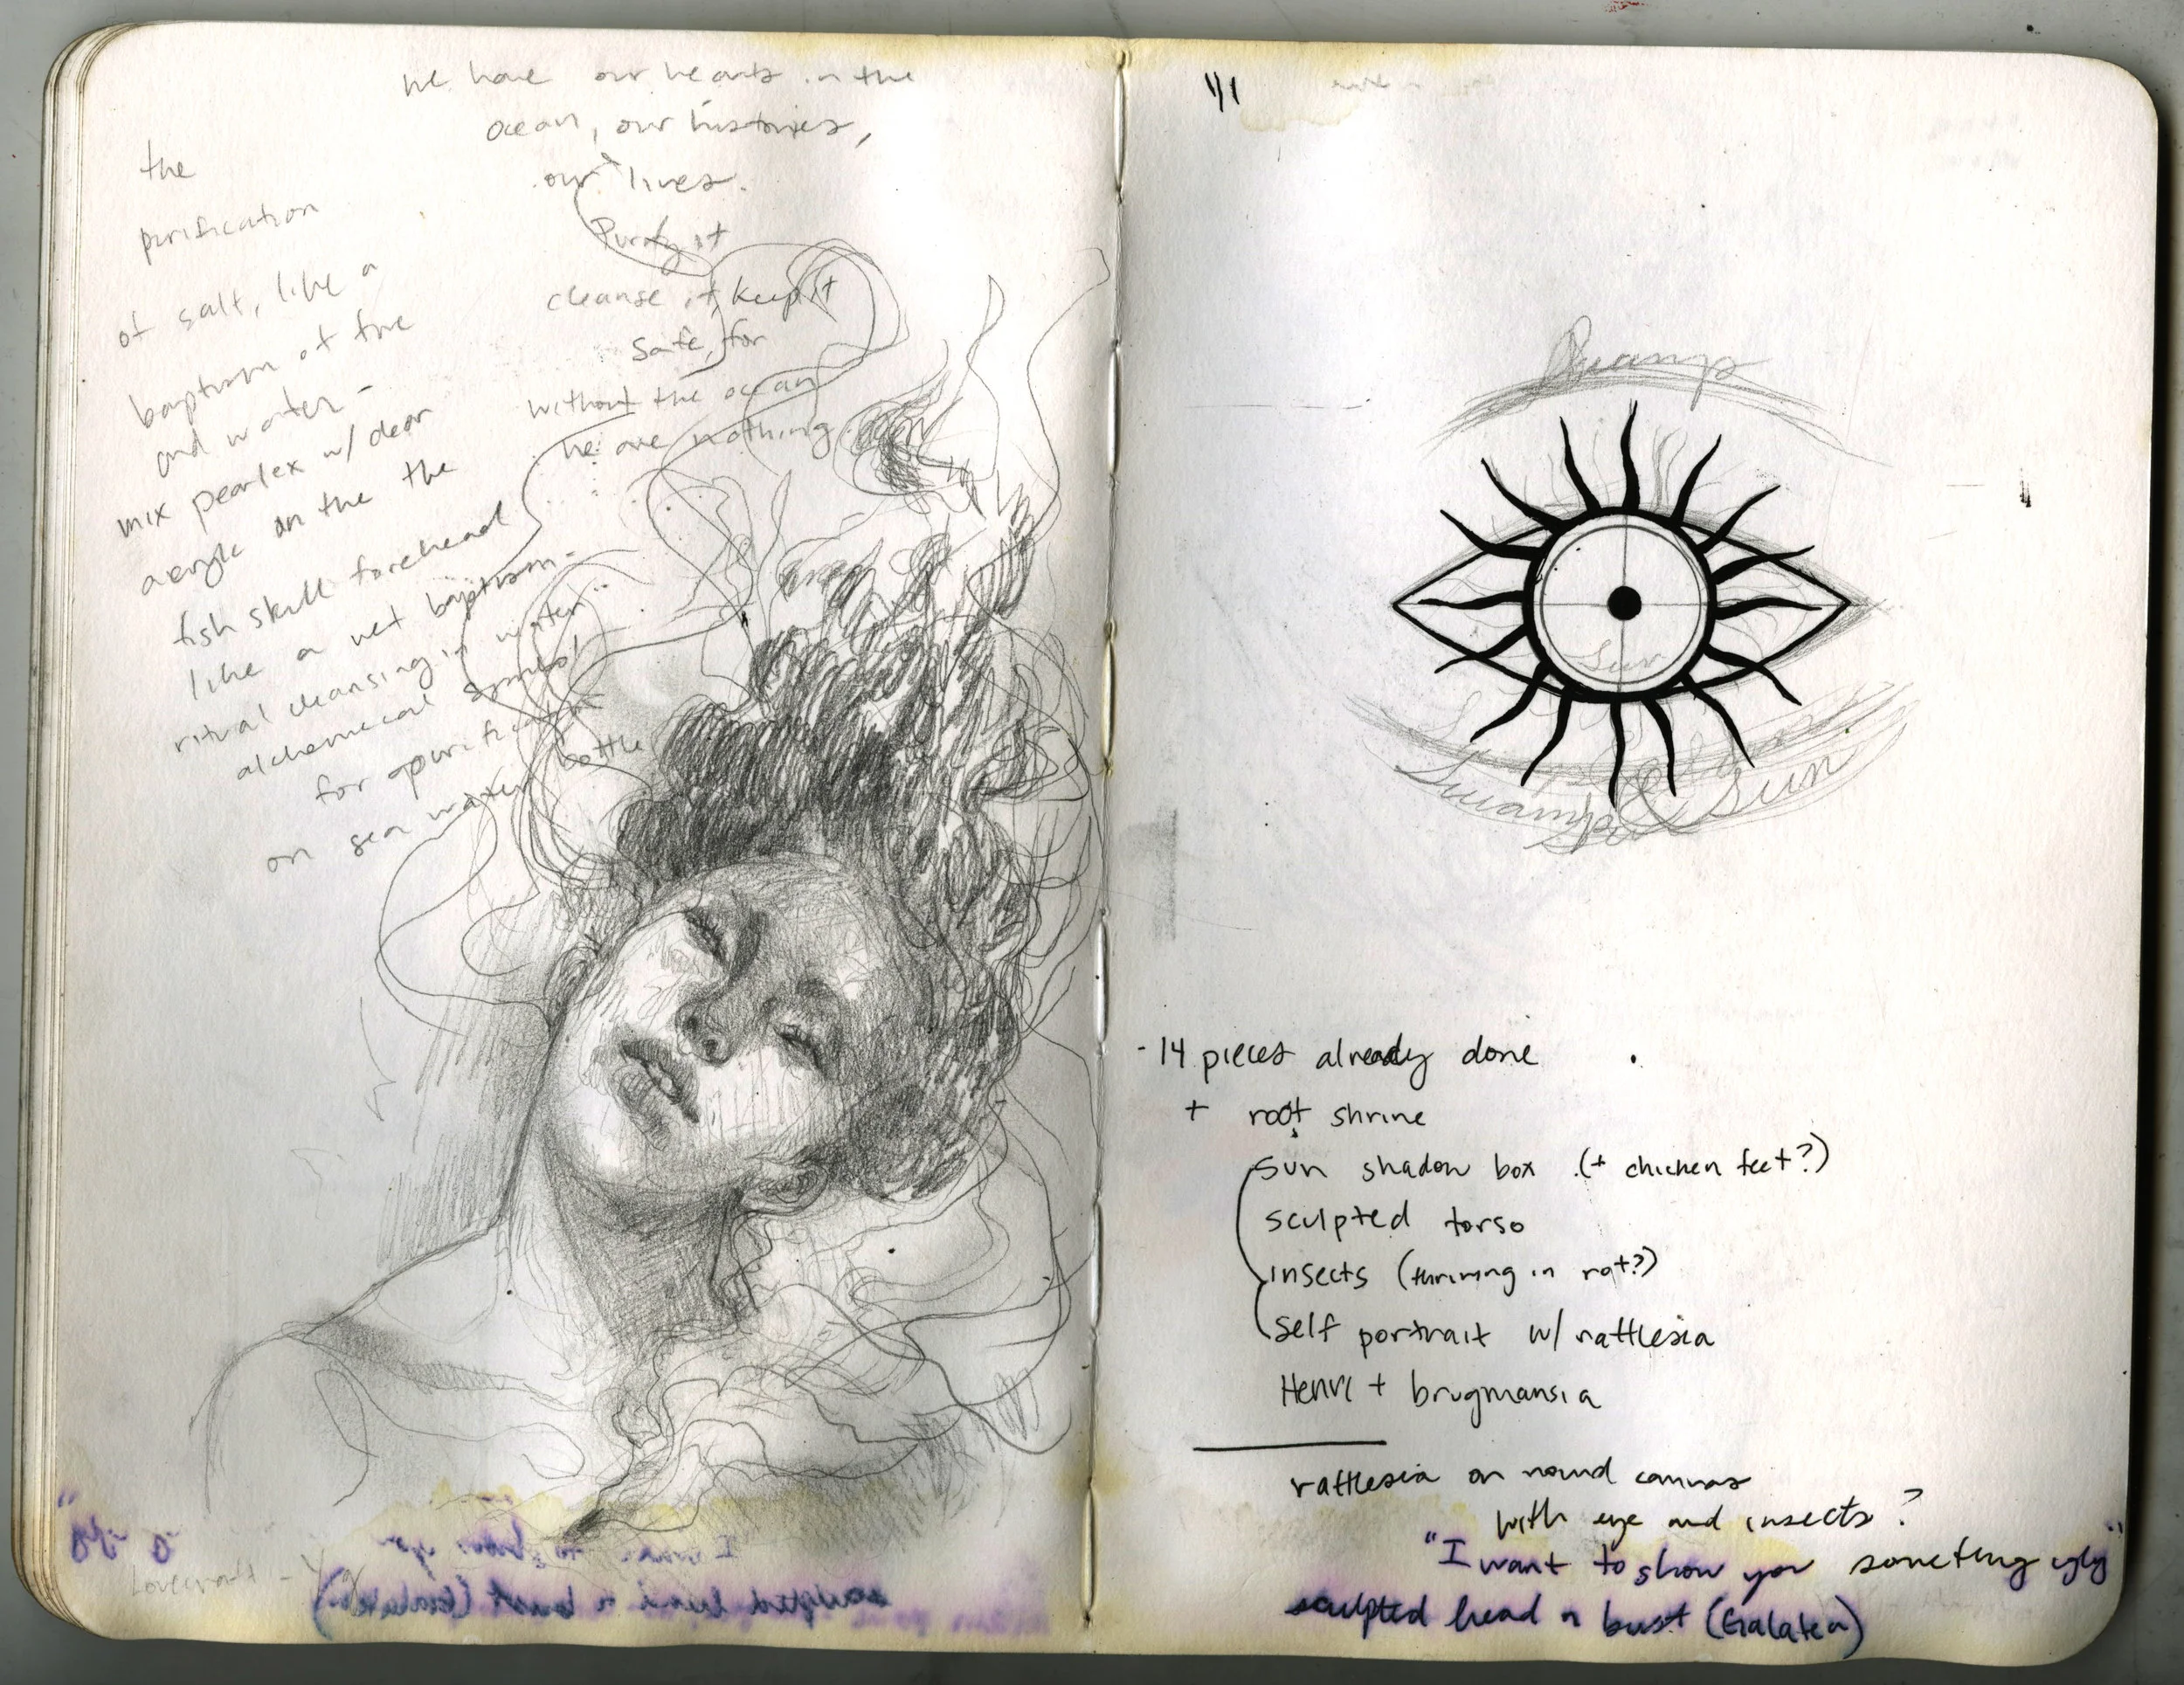 We have our hearts in the
ocean, our histories,
our lives.
Purify it
cleanse it, keep it
safe, for
without the ocean
we are nothing.
the
purification
of salt, like a
baptism of fire
and water –
mix pearlex w/ clear
acrylic on the the
fish skull forehead
like a wet baptism –
ritual cleansing in water...
alchemical symbol
for purification
on sea water bottle
Lovecraft –
Swamp
Sun
Swamp & Sun
- 14 pieces already done
+ root shrine
sun shadow box (+ chicken feet?)
sculpted torso
insects (thriving in rot?)
self portrait w/ rattlesia
Henri + brugmansia
rattlesia on round canvas
with eye and insects?
"I want to show you someting ugly"
sculpted head n bust (Galatea)